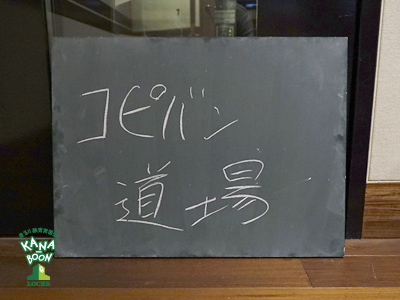 コピバン
道場
KANA
BOON
LOCKS